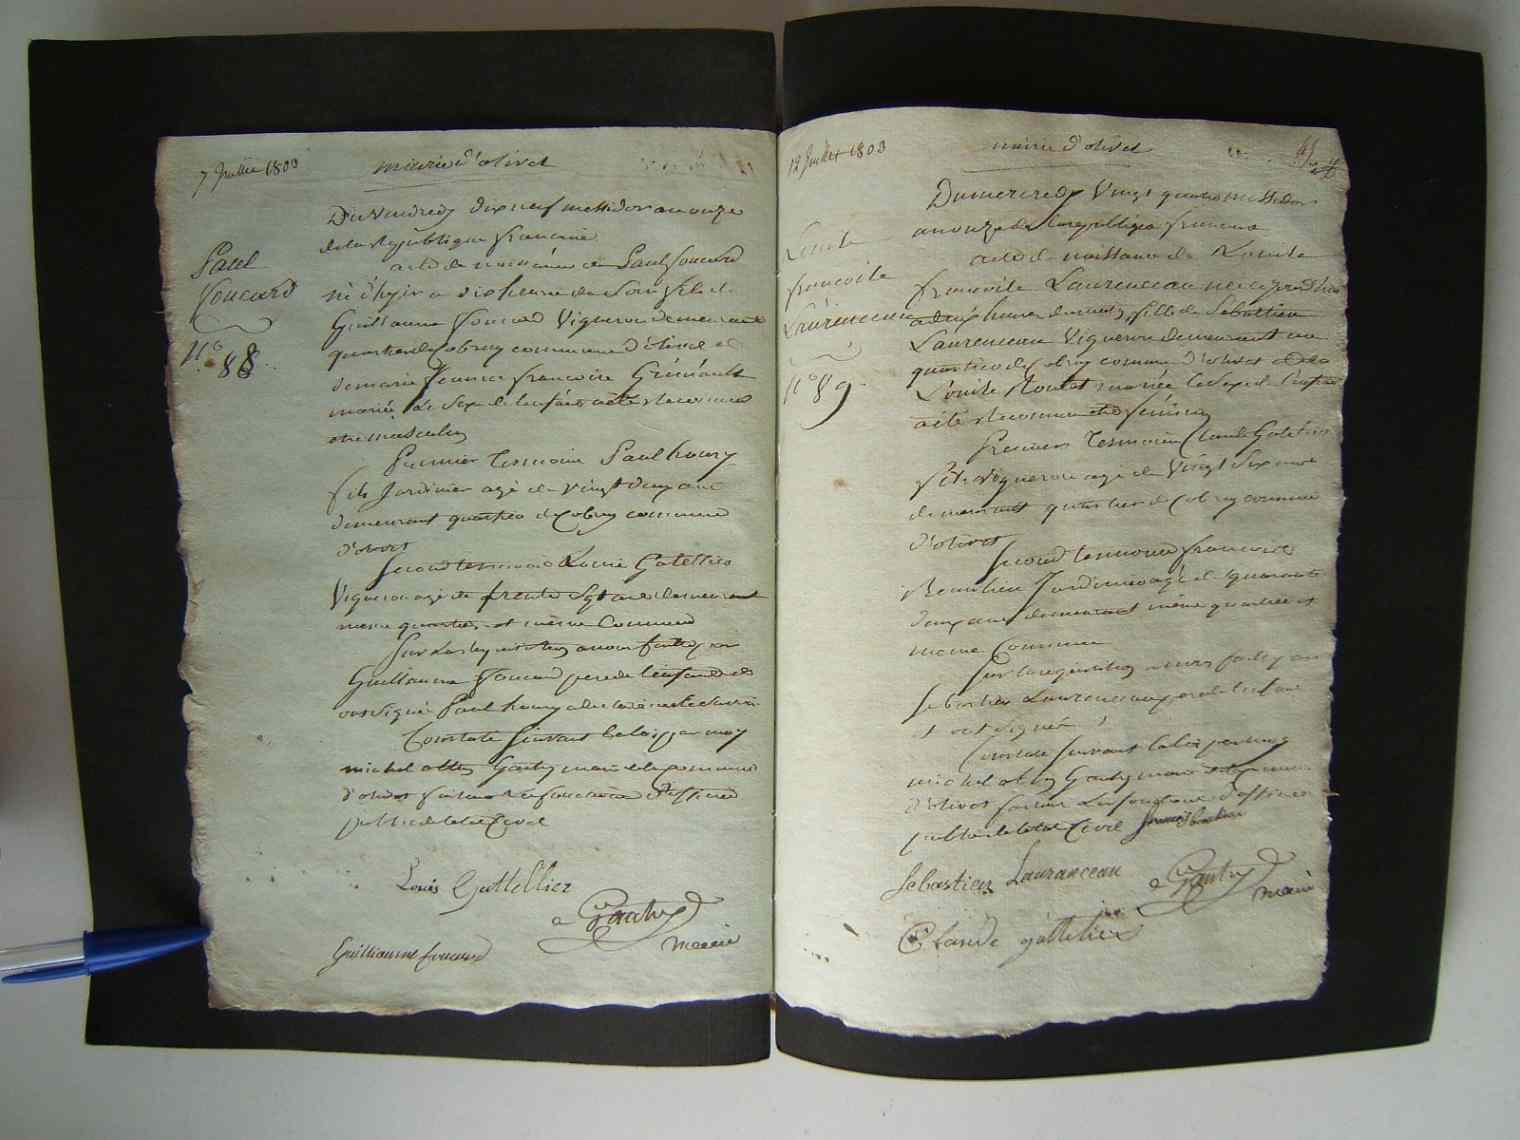 7 Juillet 1803
mairie d'olivet
Du Vendredy dix neuf messidor an onze
de la Republique francaise
acte de naissance de Paul foucard
né d'hyer a dix heure du soir fils de
Guillaume foucard Vigneron demeurant
quartier de Cobray commune d'olivet et
de marie Jeanne francoise
mariée Le Sexe de lenfant a été Reconnu
etre masculin
Paul
foucard
N.o
88
Premier Temoin Paul houry
fils Jardinier agé de Vingt deux ans
demeurant quartier de Cobray commune
d'olivet
Second temoin Louis Gatellier
Vigneron agé de trente Sept ans demeurant
meme quartier et même Commune
Sur La Requisition a nous faitte par
Guillaume foucard pere de lenfant et
ont signé Paul houry a declaré ne le Savoir
Constaté Suivant la loi par moy
michel Gautry maire de la commune
d'olivet faisant Les fonctions d'officier
public de letat Civil
Louis Gattellier
Gautry
maire
Guilliaume foucard
12 Juillet 1803
mairie d'olivet
Du mercredy Vingt quatre messidor
an onze de la republique francaise
acte de naissance de Louise
francoise Laurenceau née ce jourd'hui
a deux heures du matin fille de Sebastien
Laurenceau Vigneron demeurant au
quartier de Cobray commune d'olivet et de
Louise mariée Le Sexe de lenfant
a été Reconnu etre féminin
Louise
francoise
Laurenceau
N.o 89
Premier Temoin Claude Gatellier
fils Vigneron agé de Vingt Six ans
demeurant quartier de Cobray commune
d'olivet
Second temoin francois
Beaulieu Jardinier agé de quarante
deux ans demeurant même quartier et
meme Commune
Sur la requisition a nous faitte par
Sebastien Laurenceau pere de lenfant
et ont signé
Constaté Suivant la loi par moy
michel Gautry maire de la commune
d'olivet faisant Les fonctions d'officier
public de letat Civil
Sebastien Lauranceau
Gautry
maire
Claude gattelier